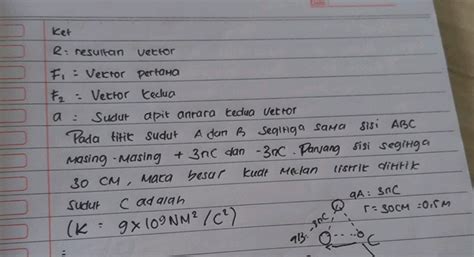 Ket
R : resultan vektor
F₁ = Vektor pertama
F₂ = Vektor kedua
a : Sudut apit antara kedua vektor
Pada titik sudut A dan B segitiga sama sisi ABC
masing-masing +3nC dan -3nC. Panjang sisi segitiga
30 CM, maka besar kuat medan listrik dititik
sudut C adalah
(K = 9x10⁹NM²/C²)
qA : 3nC
r = 30CM = 0,
C
=